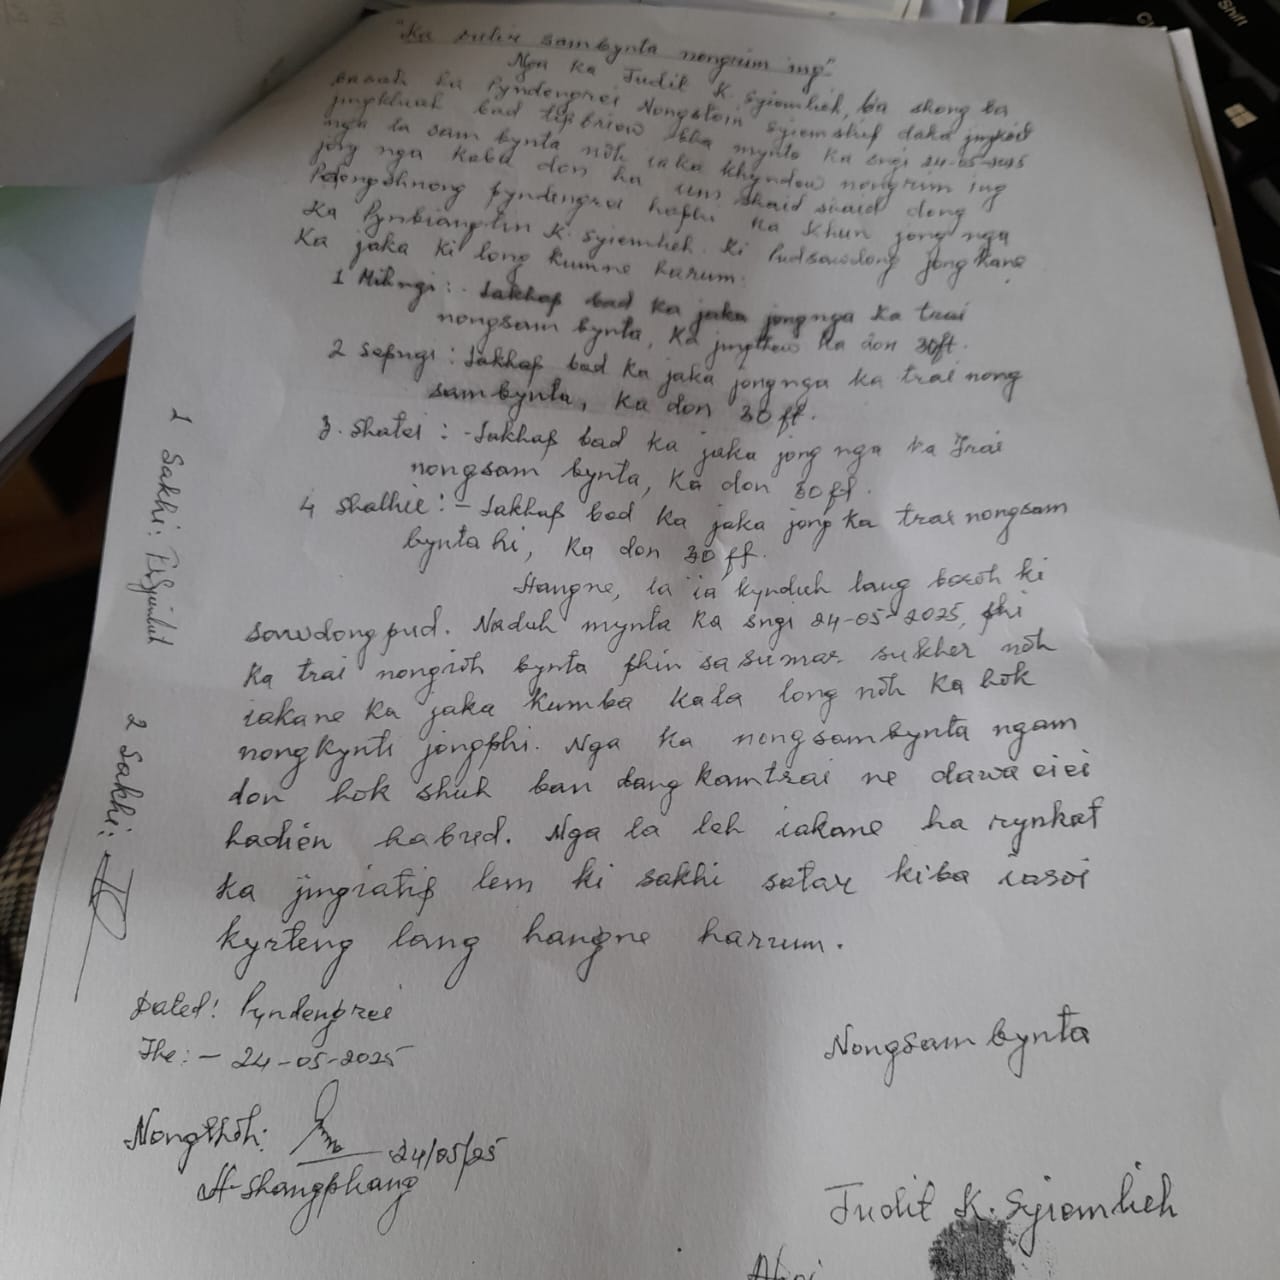 "Ka sutir sambynta nongrim ing"
Nga ka Judit K. Syiemlieh, ba shong ba
basah ha Pyndengrei Nongstoin Syiemship daka jingkoit
jingkhiah bad tipbriew bha mynta ka sngi 24-05-2025
nga la sam bynta nōh iaka khyndew nongrim ing
jong nga kaba don ha um shaid shaid dong
Pdengshnong Pyndengrei haphi ka khun jong nga
Ka Pynbianglin K. Syiemlieh. Ki Pudsawdong jong kane
Ka jaka ki long kumne harum.
1 Mihngi :- Iakhap bad ka jaka jong nga ka trai
nongsam bynta, Ka jingthew ka don 30ft.
2 Sepngi : Iakhap bad ka jaka jong nga ka trai nong
sam bynta, ka don 30 ft.
3. Shatei : - Iakhap bad ka jaka jong nga ka Trai
nongsam bynta, Ka don 30 ft.
4 Shathie : - Iakhap bad ka jaka jong ka trai nongsam
bynta hi, Ka don 30 ft.
Hangne, la ïa kynduh lang baroh ki
sawdong pud. Naduh mynta ka sngi 24-05-2025, phi
ka trai nongioh bynta phin sa sumar sukher nōh
iakane ka jaka kumba kala long nōh ka hok
nongkynti jongphi. Nga ka nongsambynta ngam
don hok shuh ban dang kamtrai ne dawa eiei
hadien habud. Nga la leh iakane ha rynkat
ka jingiatip lem ki sakhi satar kiba ïasoi
kyrteng lang hangne harum.
Dated: Pyndengrei
The: - 24-05-2025
Nongthoh:
24/05/25
H. Shangphang
Nongsam bynta
Judit K. Syiemlieh
1 Sakhi:
2 Sakhi:
Shift